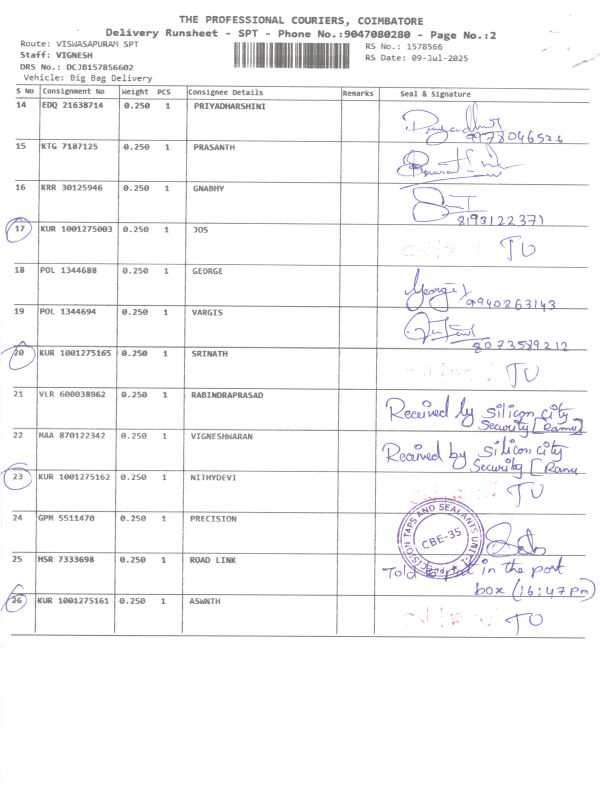 THE PROFESSIONAL COURIERS, COIMBATORE
Delivery Runsheet - SPT - Phone No.:9047080280 - Page No.:2
Route: VISWASAPURAM SPT RS No.: 1578566
Staff: VIGNESH RS Date: 09-Jul-2025
DRS No.: DCJB157856602
Vehicle: Big Bag Delivery
S No Consignment No Weight PCS Consignee Details Remarks Seal & Signature
14 EDQ 21638714 0.250 1 PRIYADHARSHINI
9978046526
15 KTG 7187125 0.250 1 PRASANTH
16 KRR 30125946 0.250 1 GNABHY
8193122371
17 KUR 1001275003 0.250 1 JOS TU
18 POL 1344688 0.250 1 GEORGE George
9940863143
19 POL 1344694 0.250 1 VARGIS
8073589212
20 KUR 1001275165 0.250 1 SRINATH TU
21 VLR 600038962 0.250 1 RABINDRAPRASAD Received by Silicon city
Security [Ramu]
22 MAA 870122342 0.250 1 VIGNESHWARAN Received by Silicon city
Security [Ramu
23 KUR 1001275162 0.250 1 NITHYDEVI TU
24 GPM 5511470 0.250 1 PRECISION CISION TAPS AND SEALANTS UNIT CBE-35
25 HSR 7333698 0.250 1 ROAD LINK Told in the port
box (16:47Pm)
26 KUR 1001275161 0.250 1 ASWNTH TU